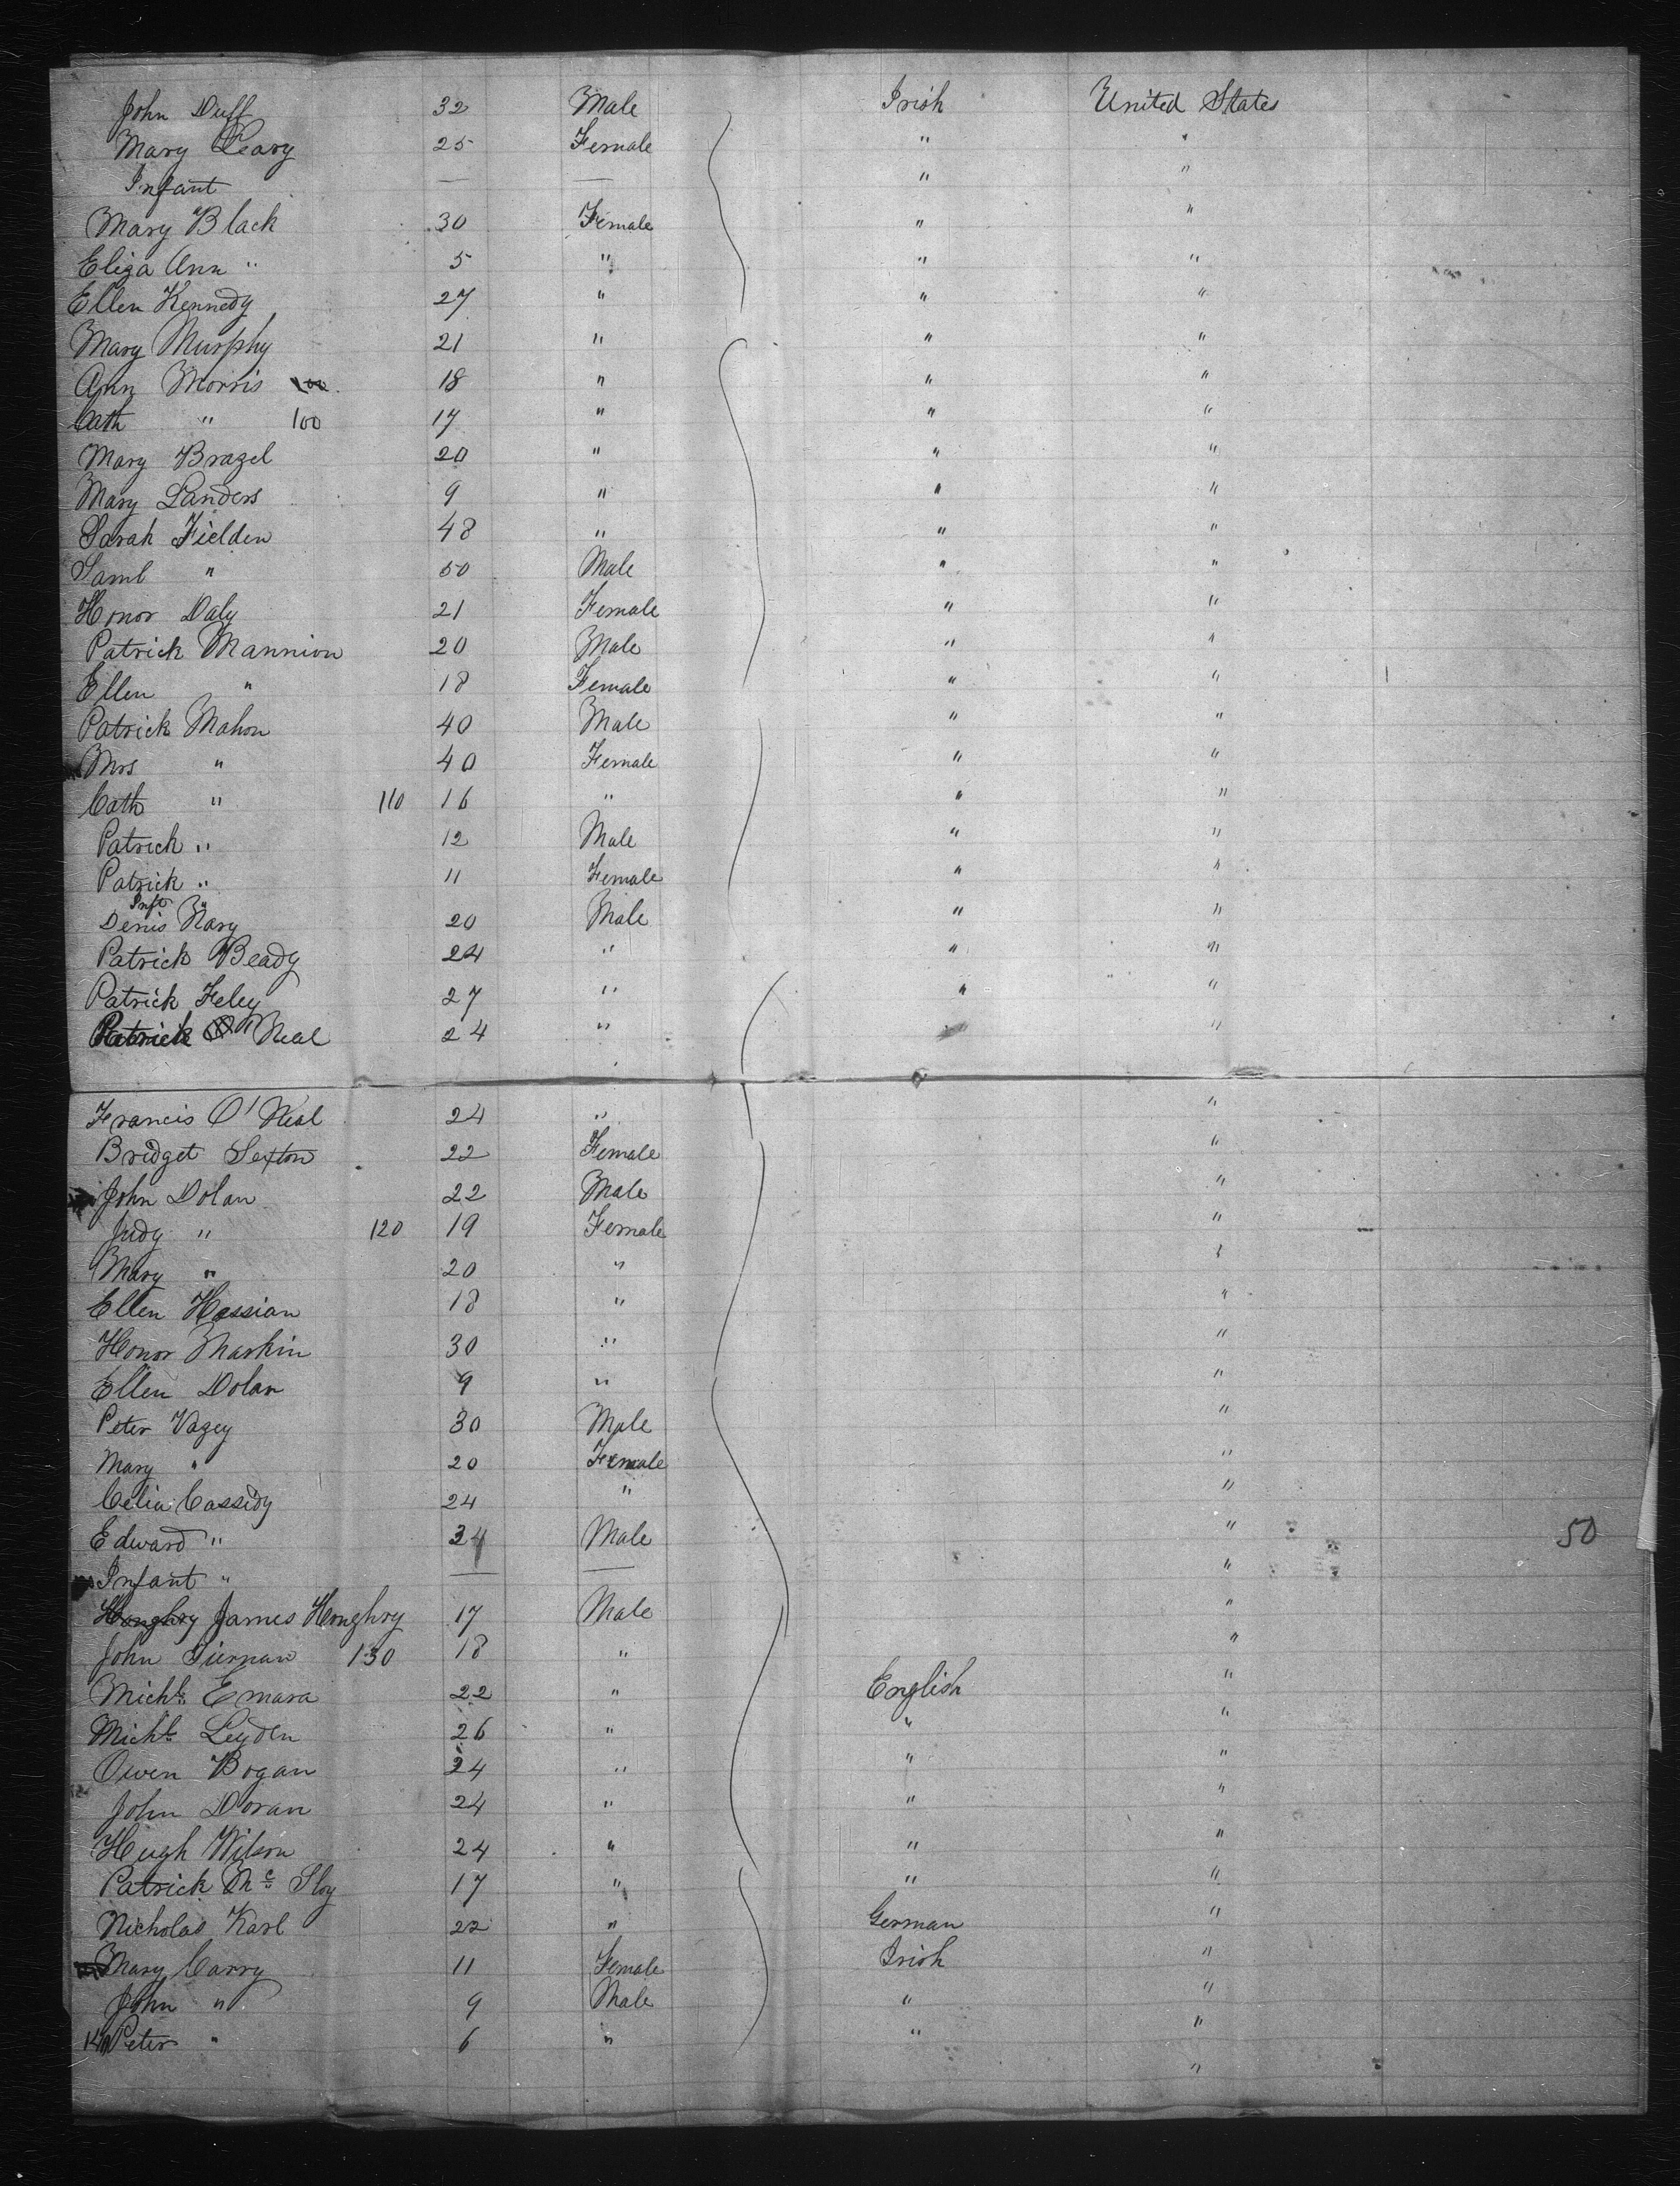 John Duff 32 Male Irish United States
Mary Leary 25 Female " "
Infant " — — " "
Mary Black 30 Female " "
Eliza Ann " 5 " " "
Ellen Kennedy 27 " " "
Mary Murphy 21 " " "
Ann Morris 100 18 " " "
Cath " 100 17 " " "
Mary Brazel 20 " " "
Mary Landers 9 " " "
Sarah Fielden 48 " " "
Saml " 50 Male " "
Honor Daly 21 Female " "
Patrick Mannion 20 Male " "
Ellen " 18 Female " "
Patrick Mahon 40 Male " "
Mrs " 40 Female " "
Cath " 110 16 " " "
Patrick " 12 Male " "
Patrick " 11 Female " "
Inft "
Denis Nary 20 Male " "
Patrick Beady 24 " " "
Patrick Feley 27 " " "
Patrick O'Neal 24 " " "
Francis O'Neal 24 " "
Bridget Sexton 22 Female "
John Dolan 22 Male "
Judy " 120 19 Female "
Mary " 20 " "
Ellen Hessian 18 " "
Honor Maskin 30 " "
Ellen Dolan 9 " "
Peter Vazey 30 Male "
Mary " 20 Female "
Celia Cassidy 24 " "
Edward " 24 Male " 50
Infant " — — "
Honghry James Honghry 17 Male "
John Tiernan 130 18 " "
Michl Emara 22 " English "
Michl Leyden 26 " " "
Owen Bogan 24 " " "
John Doran 24 " " "
Hugh Wilson 24 " " "
Patrick Mc Sloy 17 " " "
Nicholas Karl 22 " German "
Mary Carry 11 Female Irish "
John " 9 Male " "
140 Peter " 6 " " "
"